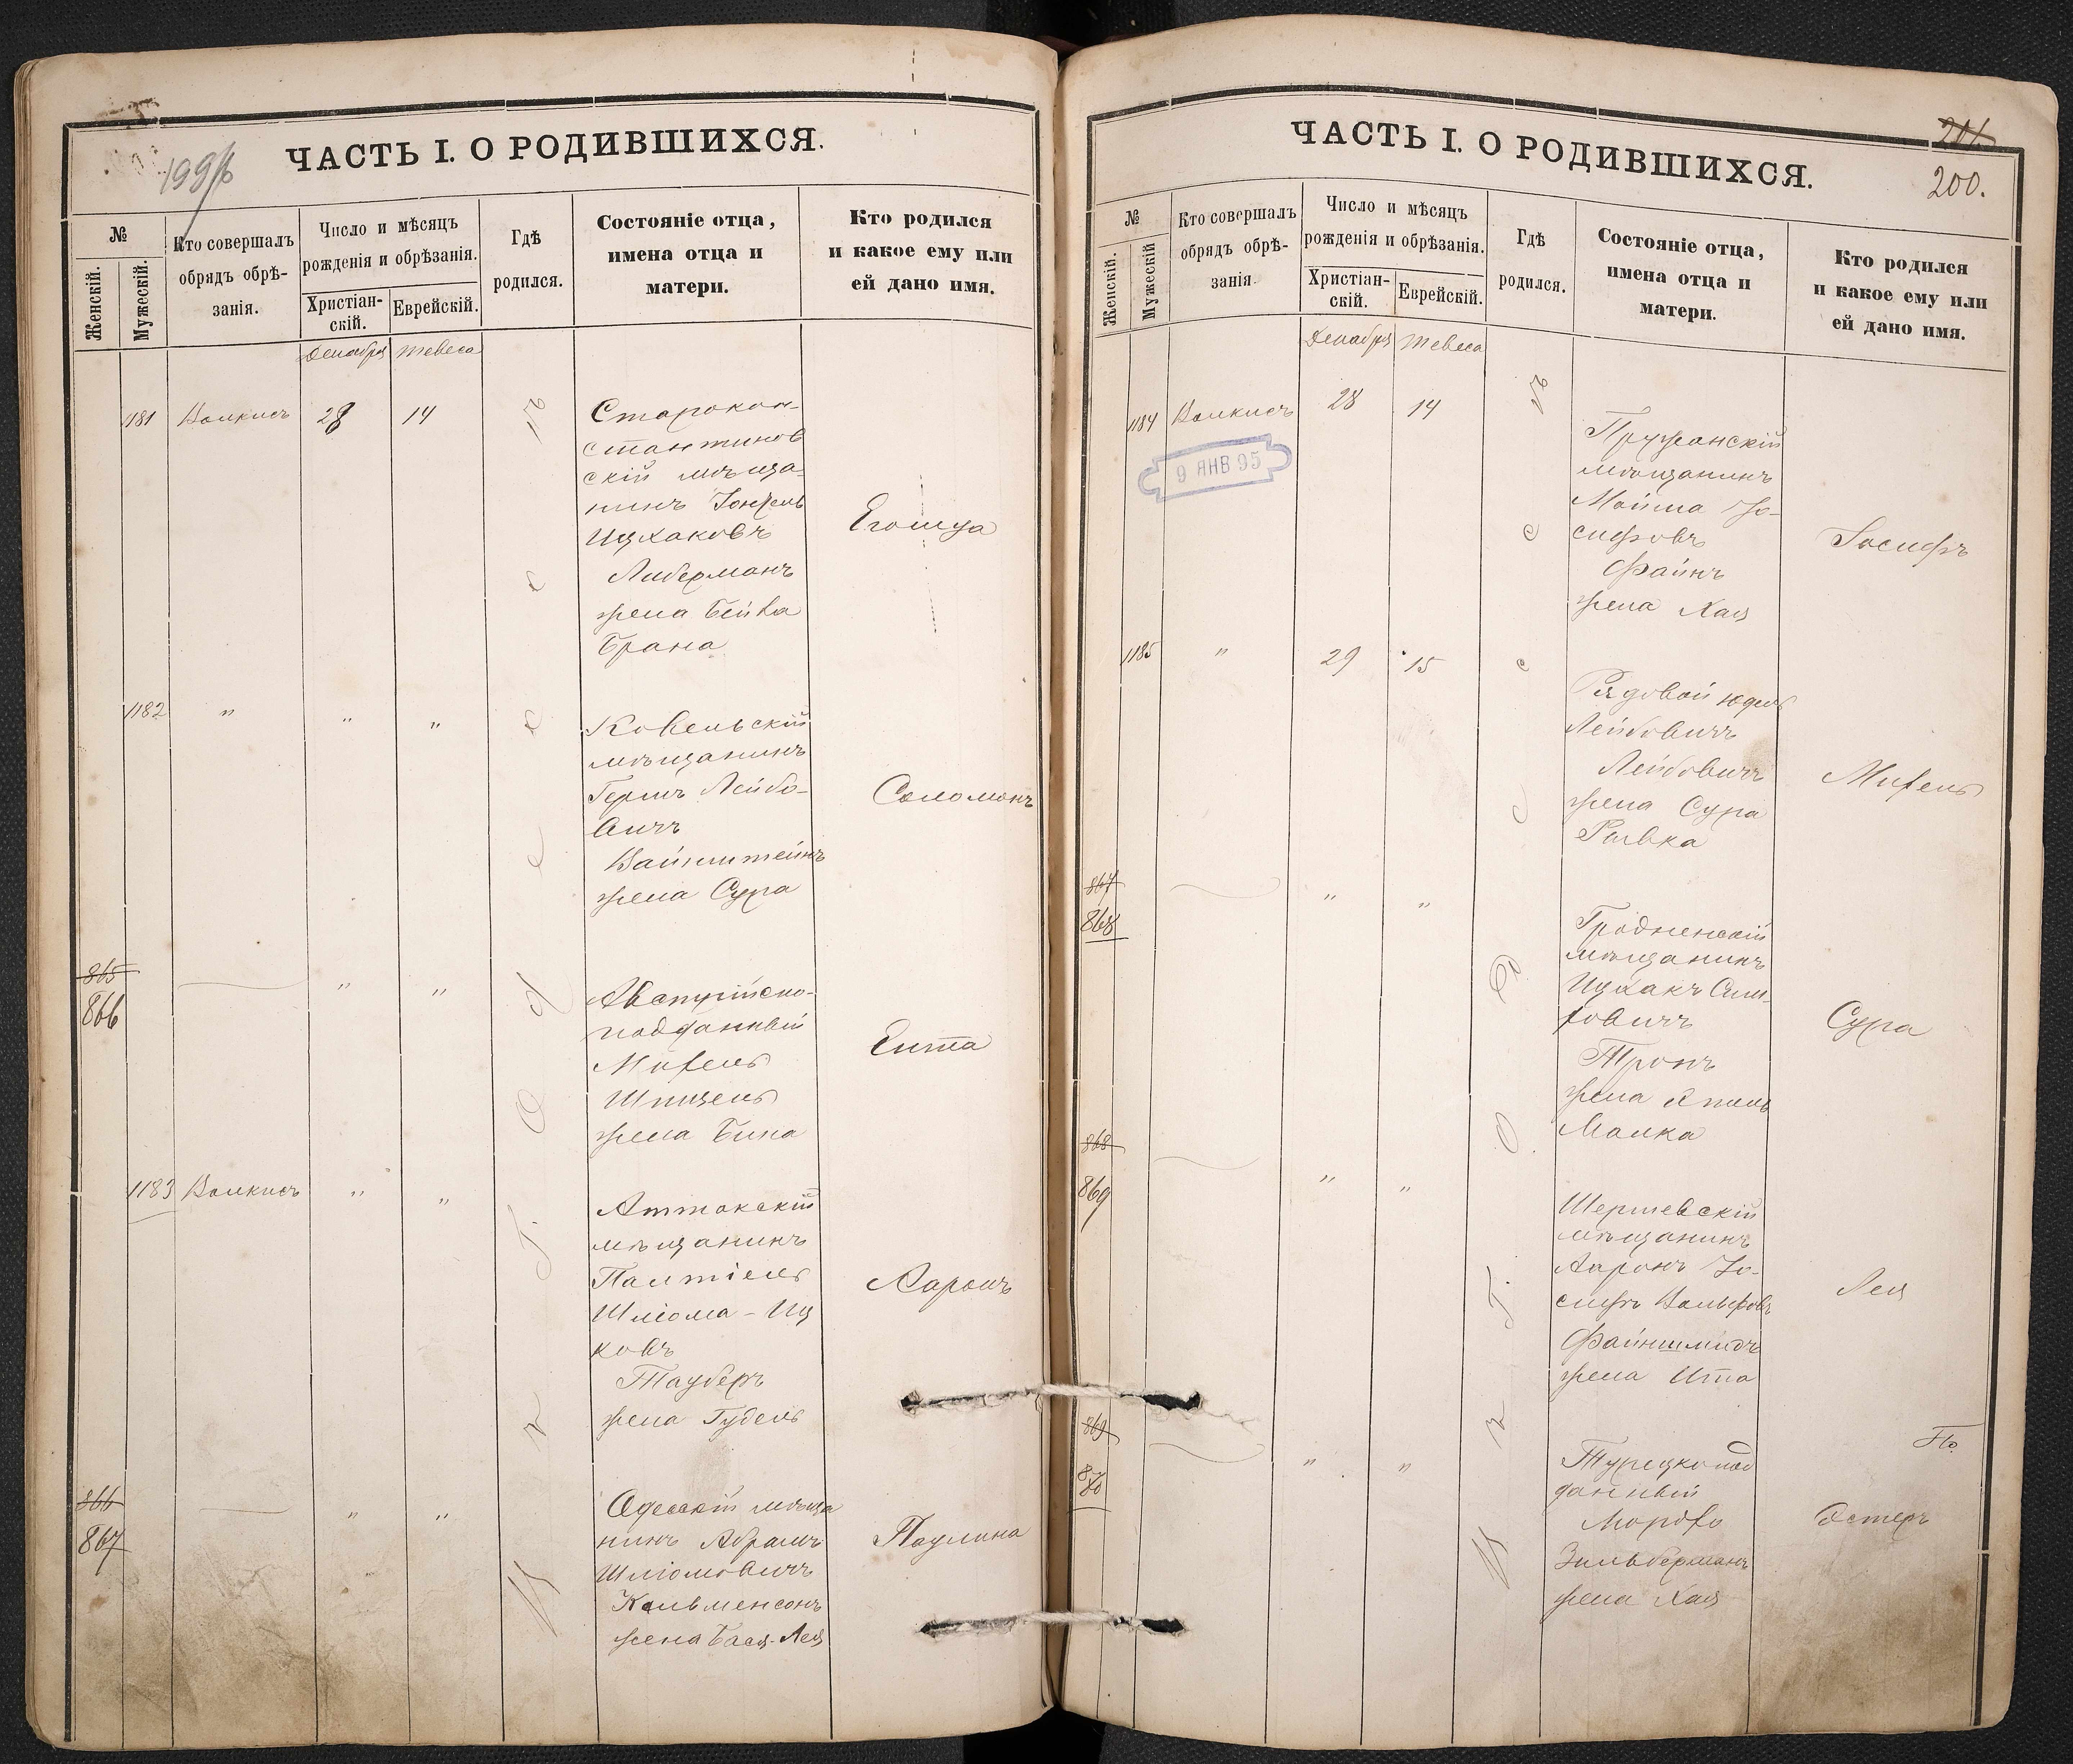 199/б
ЧАСТЬ I. О РОДИВШИХСЯ.
№
Женскій.
Мужескій.
Кто совершалъ
обрядъ обрѣ-
занія.
Число и мѣсяцъ
рожденія и обрѣзанія.
Христіан-
скій.
Еврейскій.
Гдѣ
родился.
Состояніе отца,
имена отца и
матери.
Кто родился
и какое ему или
ей дано имя.
Декабря Тевеса
1181 Волкисъ 28 14
Старокон-
стантинов
скій мѣща-
нинъ Іонхель
Ицхаковъ
Либерманъ
жена Бейла
Брана
Егошуа
1182 " " "
Ковельскій
мѣщанинъ
Гершъ Лейбо-
вичъ
Вайнштейнъ
жена Сура
Соломонъ
865
866 " "
Австрійско-
подданный
Михель
Шпицель
жена Бина
Ента
1183 Волкисъ " "
Аттакскій
мѣщанинъ
Палтіель
Шліома-Иц
ковъ
Тауберъ
жена Гудель
Ааронъ
866
867 " "
Одесскій мѣща
нинъ Абрамъ
Шліомовичъ
Кальменсонъ
жена Бася-Лея
Паулина
въ г. Одессѣ
ЧАСТЬ I. О РОДИВШИХСЯ.
201.
200.
№
Женскій.
Мужескій
Кто совершалъ
обрядъ обрѣ-
занія.
Число и мѣсяцъ
рожденія и обрѣзанія.
Христіан-
скій.
Еврейскій.
Гдѣ
родился.
Состояніе отца,
имена отца и
матери.
Кто родился
и какое ему или
ей дано имя.
Декабря Тевеса
1184 Волкисъ 28 14
9 ЯНВ 95
Пружанскій
мѣщанинъ
Мойша Іо-
сифовъ
Файнъ
жена Хая
Іосифъ
1185 " 29 15
Рядовой Юдель
Лейбовичъ
Лейбовичъ
жена Сура
Ривка
Михель
867
868 " "
Гродненскій
мѣщанинъ
Ицхакъ Сим-
ховичъ
Тронъ
жена
Малка
Сура
868
869 " "
Шершевскій
мѣщанинъ
Ааронъ Іо-
сифъ Вольфовъ
Файншмидъ
жена Ита
Лея
869
870 " "
Турецкопод
данный
Мордко
Зильберманъ
жена Хая
Эстеръ
въ г. Одессѣ